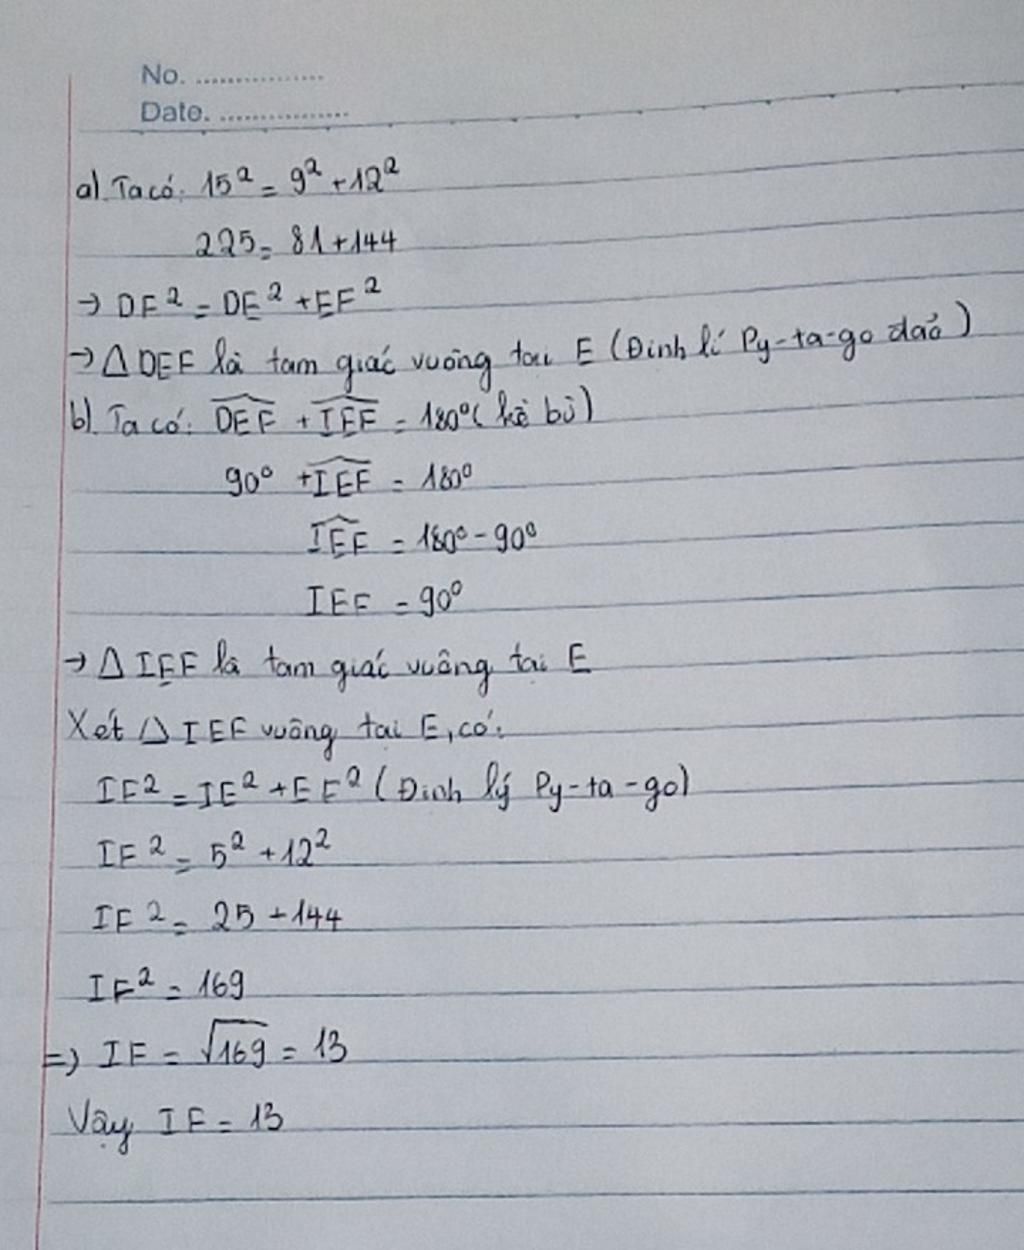 No. ................
Date. ................
a). Ta có: 15² = 9² + 12²
225 = 81 + 144
→ DF² = DE² + EF²
→ △DEF là tam giác vuông tại E (Định lí Py-ta-go đảo)
b). Ta có: \widehat{DEF} + \widehat{IEF} = 180° ( kề bù)
90° + \widehat{IEF} = 180°
\widehat{IEF} = 180° - 90°
IEF = 90°
→ △ IEF là tam giác vuông tại E
Xét △ IEF vuông tại E, có:
IF² = IE² + EF² (Định lý Py-ta-go)
IF² = 5² + 12²
IF² = 25 + 144
IF² = 169
=> IF = √169 = 13
Vậy IF = 13